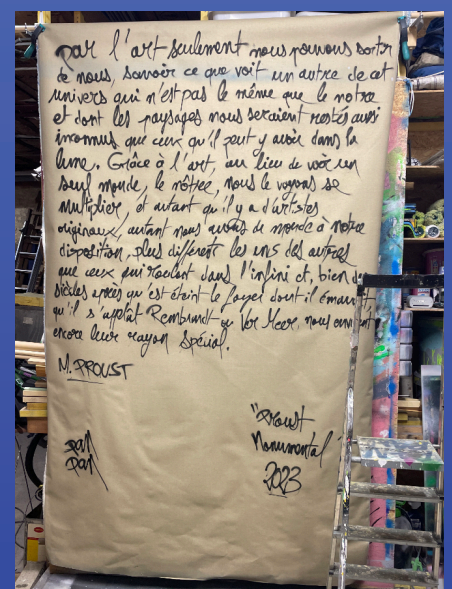 par l'art seulement nous pouvons sortir
de nous, savoir ce que voit un autre de cet
univers qui n'est pas le même que le notre
et dont les paysages nous seraient restés aussi
inconnus que ceux qu'il peut y avoir dans la
lune. Grâce à l'art, au lieu de voir un
seul monde, le nôtre, nous le voyons se
multiplier, et autant qu'il y a d'artistes
originaux, autant nous avons de monde à notre
disposition, plus différent les uns des autres
que ceux qui roulent dans l'infini et, bien des
siècles après qu'est éteint le foyer dont il émanait
qu'il s'applât Rembrandt ou Ver Meer, nous envoient
encore leur rayon spécial.
M. PROUST
"Proust
Monumental"
2023